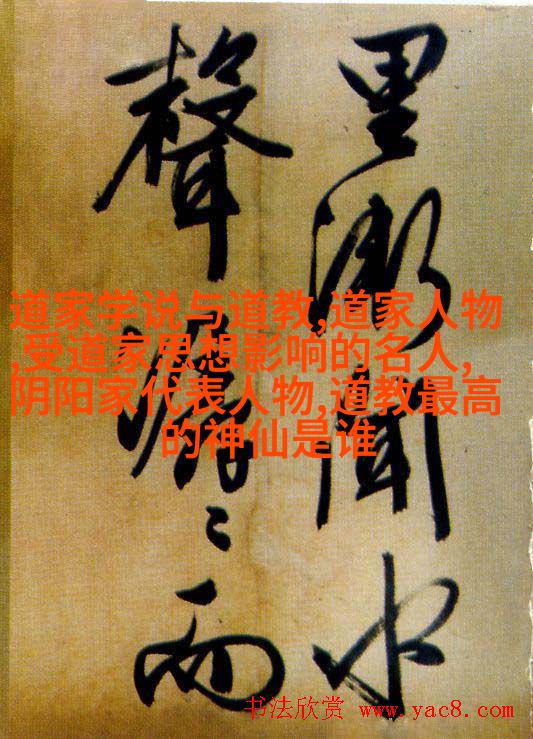 里漸聞水
聲潺〻而
道家学说与道教,道家人物
,受道家思想影响的名人,
阴阳家代表人物,道教最高
的神仙是谁
书法欣赏 www.yac8.com